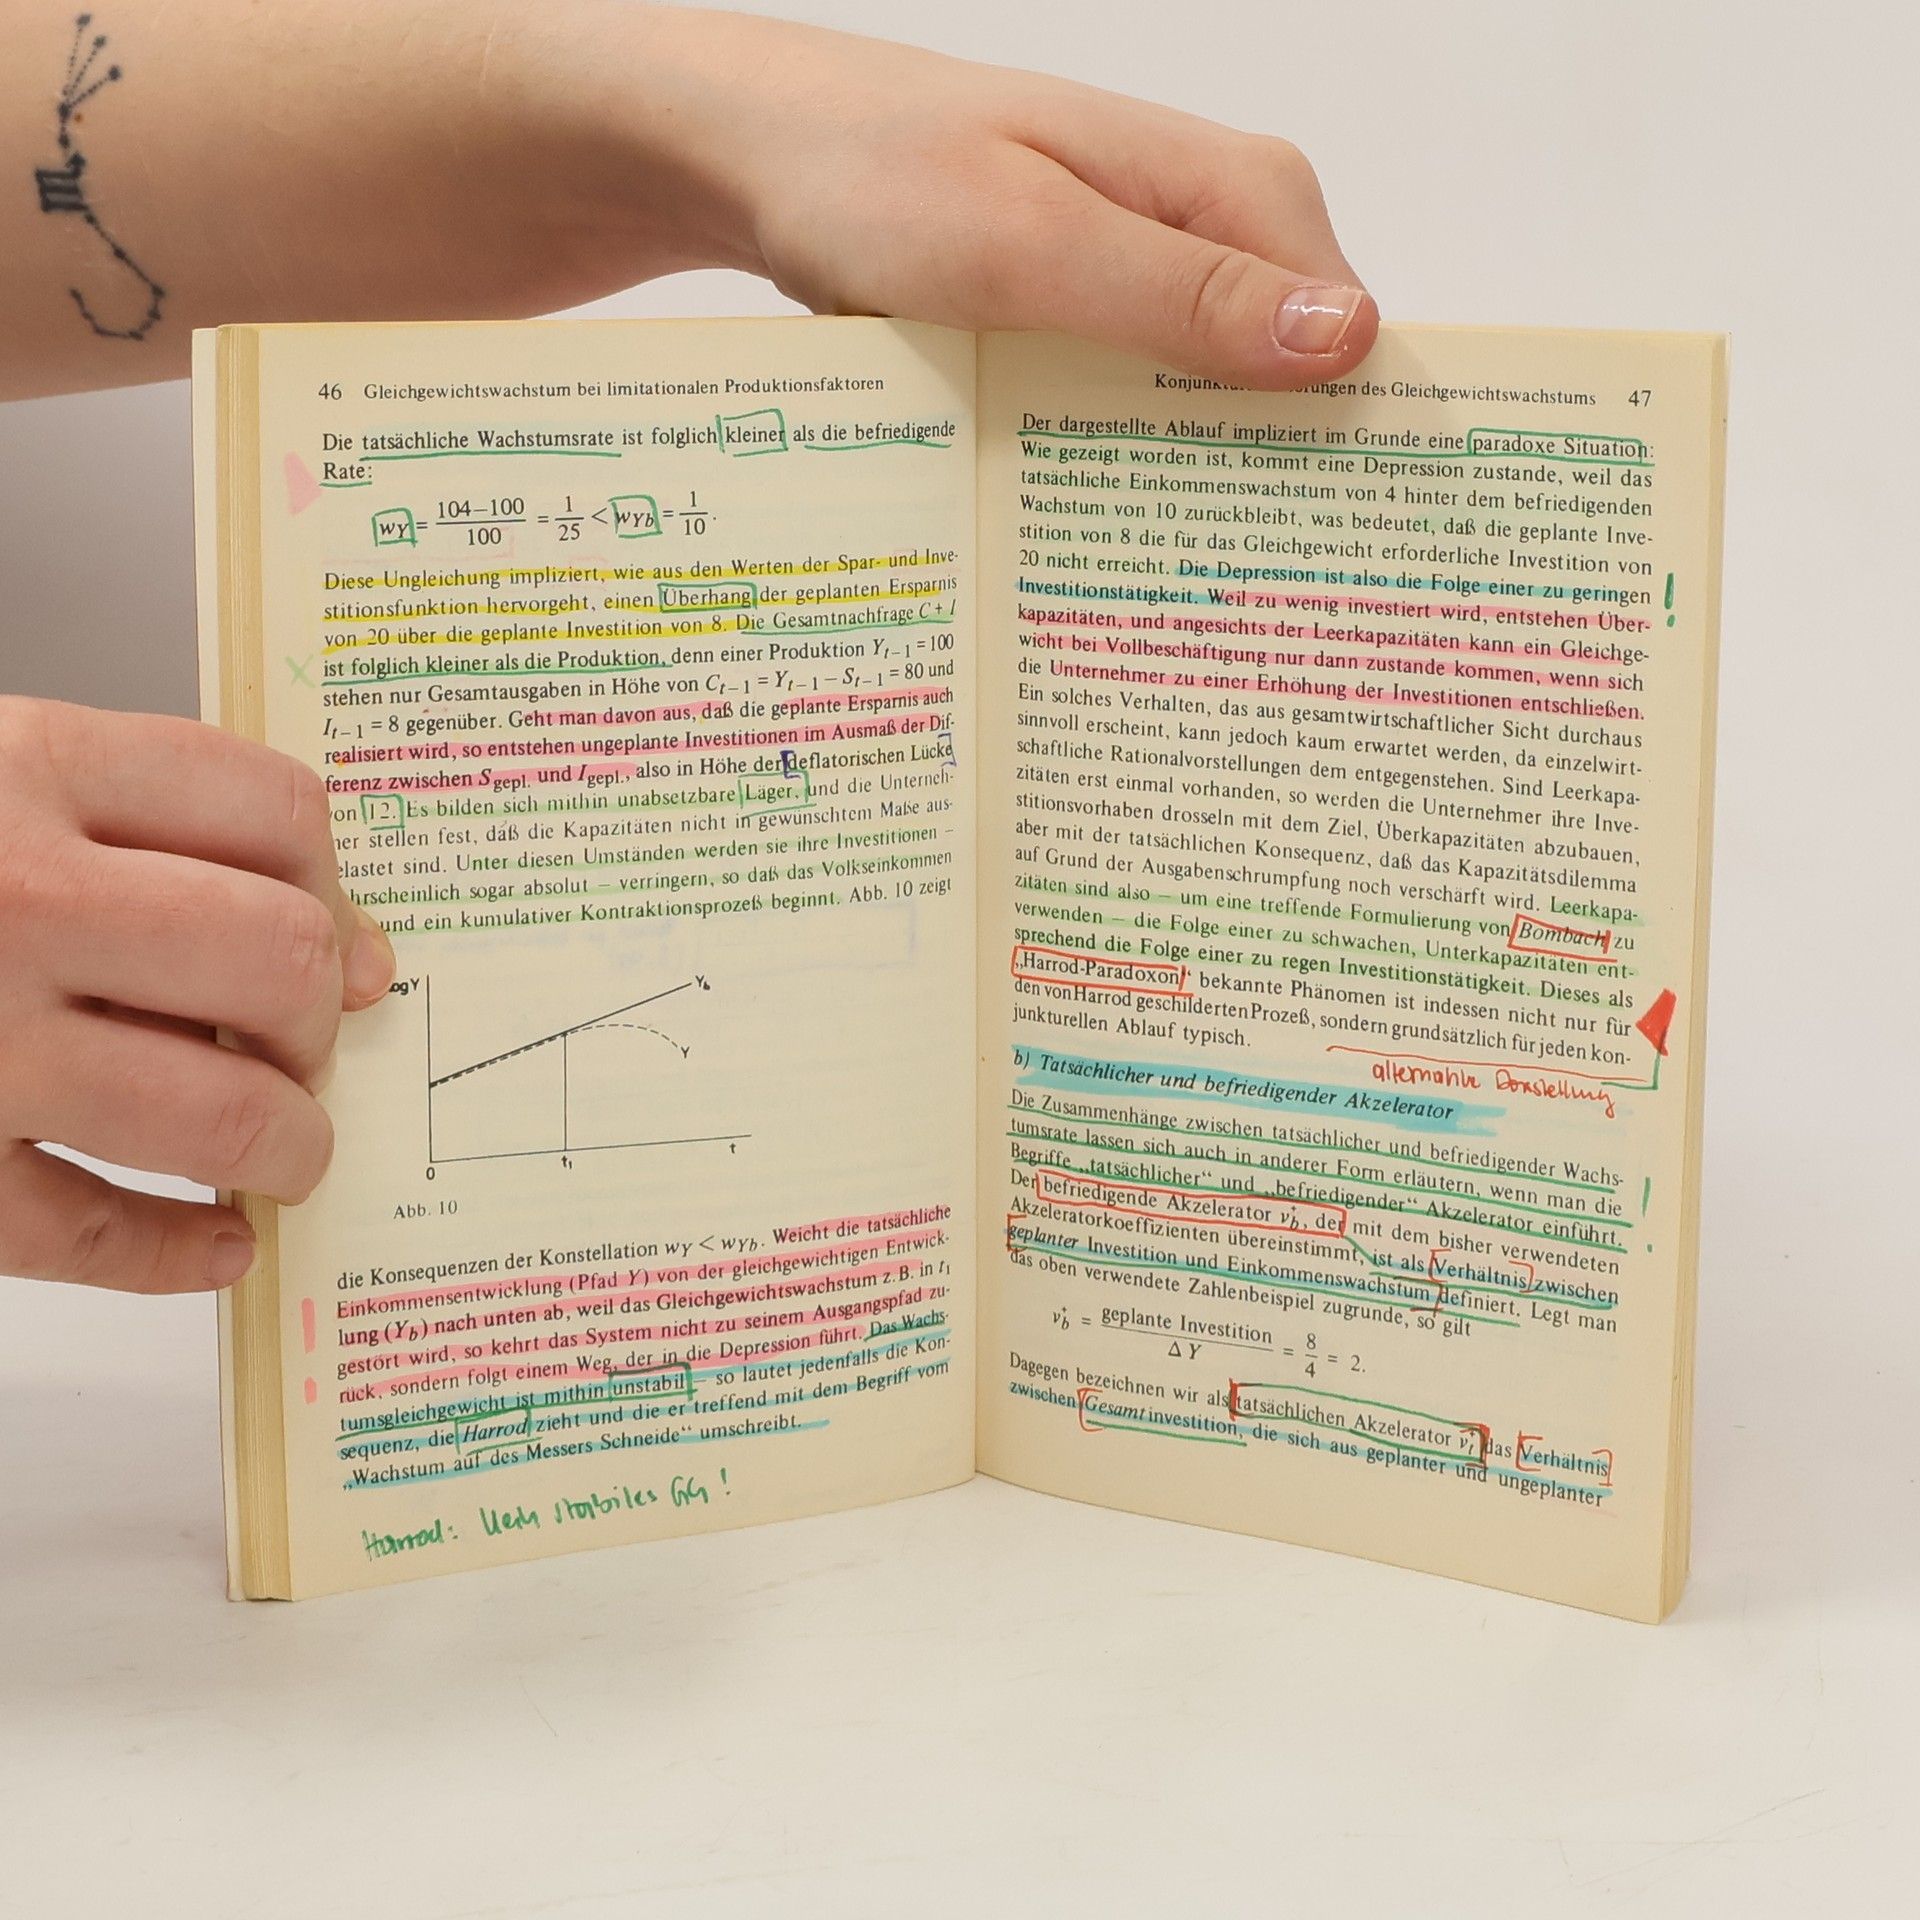 46 Gleichgewichtswachstum bei limitationalen Produktionsfaktoren
Die tatsächliche Wachstumsrate ist folglich kleiner als die befriedigende
Rate:
wY = 104–100 / 100 = 1/25 < wYb = 1/10.
Diese Ungleichung impliziert, wie aus den Werten der Spar- und Inve-
stitionsfunktion hervorgeht, einen Überhang der geplanten Ersparnis
von 20 über die geplante Investition von 8. Die Gesamtnachfrage C + I
ist folglich kleiner als die Produktion, denn einer Produktion Yt–1 = 100
stehen nur Gesamtausgaben in Höhe von Ct–1 = Yt–1 – St–1 = 80 und
It–1 = 8 gegenüber. Geht man davon aus, daß die geplante Ersparnis auch
realisiert wird, so entstehen ungeplante Investitionen im Ausmaß der Dif-
ferenz zwischen Sgepl. und Igepl., also in Höhe der deflatorischen Lücke
von 12. Es bilden sich mithin unabsetzbare Läger, und die Unterneh-
mer stellen fest, daß die Kapazitäten nicht in gewünschtem Maße aus-
gelastet sind. Unter diesen Umständen werden sie ihre Investitionen –
hrscheinlich sogar absolut – verringern, so daß das Volkseinkommen
und ein kumulativer Kontraktionsprozeß beginnt. Abb. 10 zeigt
log Y
Yb
Y
0
t1
t
Abb. 10
die Konsequenzen der Konstellation wY < wYb. Weicht die tatsächliche
Einkommensentwicklung (Pfad Y) von der gleichgewichtigen Entwick-
lung (Yb) nach unten ab, weil das Gleichgewichtswachstum z.B. in t1
gestört wird, so kehrt das System nicht zu seinem Ausgangspfad zu-
rück, sondern folgt einem Weg, der in die Depression führt. Das Wachs-
tumsgleichgewicht ist mithin unstabil – so lautet jedenfalls die Kon-
sequenz, die Harrod zieht und die er treffend mit dem Begriff vom
„Wachstum auf des Messers Schneide“ umschreibt.
Harrod: stabiles GG!
des Gleichgewichtswachstums 47
Der dargestellte Ablauf impliziert im Grunde eine paradoxe Situation:
Wie gezeigt worden ist, kommt eine Depression zustande, weil das
tatsächliche Einkommenswachstum von 4 hinter dem befriedigenden
Wachstum von 10 zurückbleibt, was bedeutet, daß die geplante Inve-
stition von 8 die für das Gleichgewicht erforderliche Investition von
20 nicht erreicht. Die Depression ist also die Folge einer zu geringen
Investitionstätigkeit. Weil zu wenig investiert wird, entstehen Über-
kapazitäten, und angesichts der Leerkapazitäten kann ein Gleichge-
wicht bei Vollbeschäftigung nur dann zustande kommen, wenn sich
die Unternehmer zu einer Erhöhung der Investitionen entschließen.
Ein solches Verhalten, das aus gesamtwirtschaftlicher Sicht durchaus
sinnvoll erscheint, kann jedoch kaum erwartet werden, da einzelwirt-
schaftliche Rationalvorstellungen dem entgegenstehen. Sind Leerkapa-
zitäten erst einmal vorhanden, so werden die Unternehmer ihre Inve-
stitionsvorhaben drosseln mit dem Ziel, Überkapazitäten abzubauen,
aber mit der tatsächlichen Konsequenz, daß das Kapazitätsdilemma
auf Grund der Ausgabenschrumpfung noch verschärft wird. Leerkapa-
zitäten sind also – um eine treffende Formulierung von Bombach zu
verwenden – die Folge einer zu schwachen, Unterkapazitäten ent-
sprechend die Folge einer zu regen Investitionstätigkeit. Dieses als
„Harrod-Paradoxon“ bekannte Phänomen ist indessen nicht nur für
den von Harrod geschilderten Prozeß, sondern grundsätzlich für jeden kon-
junkturellen Ablauf typisch.
alternative Darstellung
b) Tatsächlicher und befriedigender Akzelerator
Die Zusammenhänge zwischen tatsächlicher und befriedigender Wachs-
tumsrate lassen sich auch in anderer Form erläutern, wenn man die
Begriffe „tatsächlicher“ und „befriedigender“ Akzelerator einführt.
Der befriedigende Akzelerator v*b, der mit dem bisher verwendeten
Akzeleratorkoeffizienten übereinstimmt, ist als Verhältnis zwischen
geplanter Investition und Einkommenswachstum definiert. Legt man
das oben verwendete Zahlenbeispiel zugrunde, so gilt
v*b = geplante Investition / Δ Y = 8/4 = 2.
Dagegen bezeichnen wir als tatsächlichen Akzelerator v*t das Verhältnis
zwischen Gesamtinvestition, die sich aus geplanter und ungeplanter